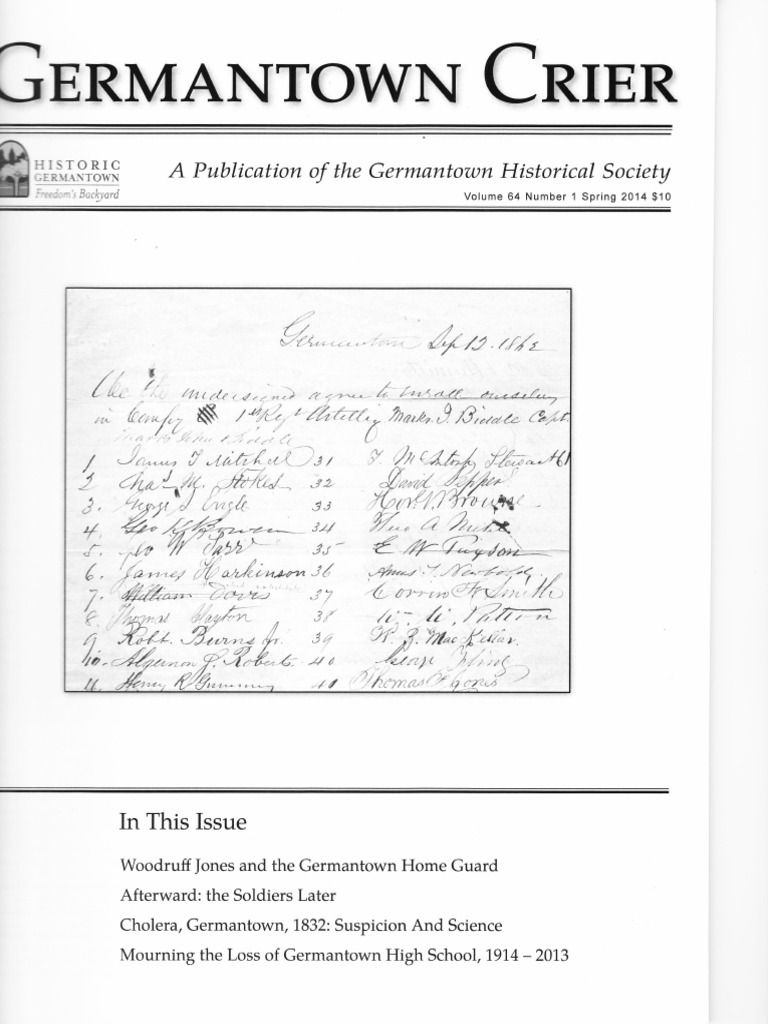 GERMANTOWN CRIER
HISTORIC
GERMANTOWN
Freedom's Backyard
A Publication of the Germantown Historical Society
Volume 64 Number 1 Spring 2014 $10
Germantown Sep 12. 1862
We the undersigned agree to enroll ourselves
in Compy 1st Regt Artillery Marks J. Biddle Capt.
1 James T Mitchell 31 T. McIntosh Stewart 61
2 Chas M. Stokes 32 David Pepper
3. George T Engle 33 Hor. N. Browne
4. Geo K Bowen 34 Theo A
5. W Tarr 35 E W
6. James Harkinson 36 Newbold
7. William Davis 37 W Smith
8. Thomas Hayton 38 Patton
9 Robt. Burns Jr. 39 MacKellar
10. Algernon S. Roberts 40 George Kling
11. Henry R Gummey 40 Thomas
In This Issue
Woodruff Jones and the Germantown Home Guard
Afterward: the Soldiers Later
Cholera, Germantown, 1832: Suspicion And Science
Mourning the Loss of Germantown High School, 1914 – 2013